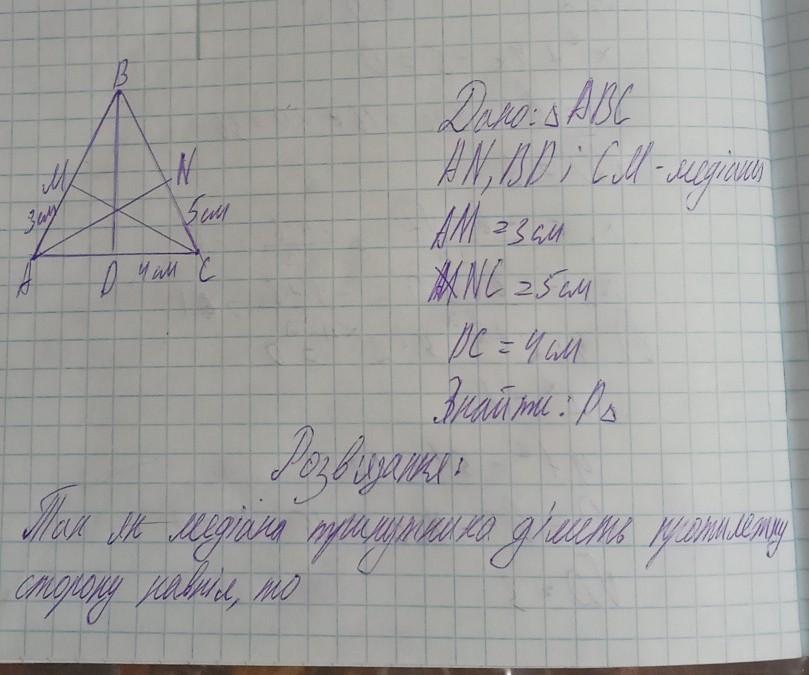 B
M
N
3см
5см
A
D
4см
C
Дано: △ ABC
AN, BD і CM - медіани
AM = 3 см
NC = 5 см
DC = 4 см
Знайти: P△
Розв'язання:
Так як медіана трикутника ділить протилежну
сторону навпіл, то